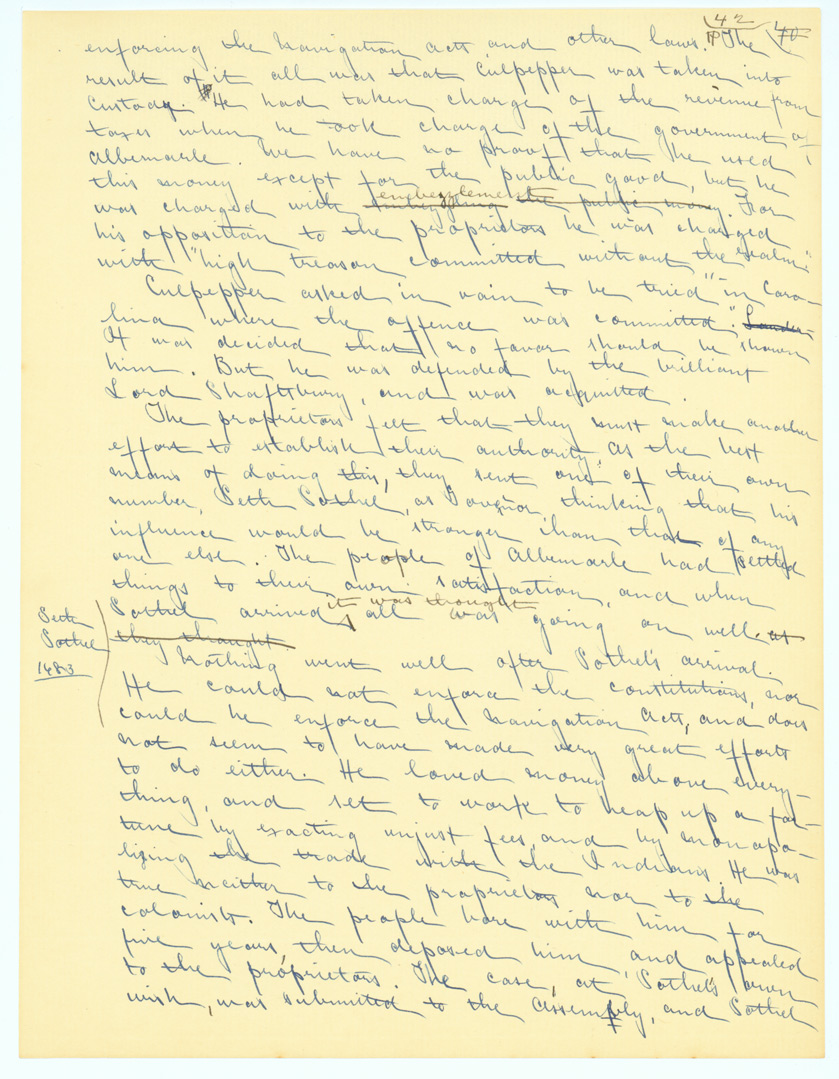 42 40
enforcing the Navigation acts and other laws. ¶ The
result of it all was that Culpepper was taken into
custody. ¶ He had taken charge of the revenue from
taxes when he took charge of the government of
Albemarle. We have no proof that he used
this money except for the public good, but he
embezzlement
was charged with embezzling the public money. For
his opposition to the proprietors he was charged
with "high treason committed without the realm."
Culpepper asked in vain to be tried "in Caro-
lina where the offence was committed."
It was decided that no favor should be shown
him. But he was defended by the brilliant
Lord Shaftsbury, and was acquitted.
The proprietors felt that they must make another
effort to establish their authority. As the best
means of doing this, they sent one of their own
number, Seth Sothel, as Governor, thinking that his
influence would be stronger than that of any
one else. The people of Albemarle had settled
things to their own satisfaction, and when
it was thought
Sothel arrived all was going on well. as
they thought
Seth
Sothel
1683
Nothing went well after Sothel's arrival.
He could not enforce the constitutions, nor
could he enforce the Navigation Acts, and does
not seem to have made very great efforts
to do either. He loved money above every-
thing, and set to work to heap up a for-
tune by exacting unjust fees, and by monopo-
lizing the trade with the Indians. He was
true neither to the proprietors nor to the
colonists. The people bore with him for
five years, then deposed him, and appealed
to the proprietors. The case, at Sothel's own
wish, was submitted to the Assembly, and Sothel